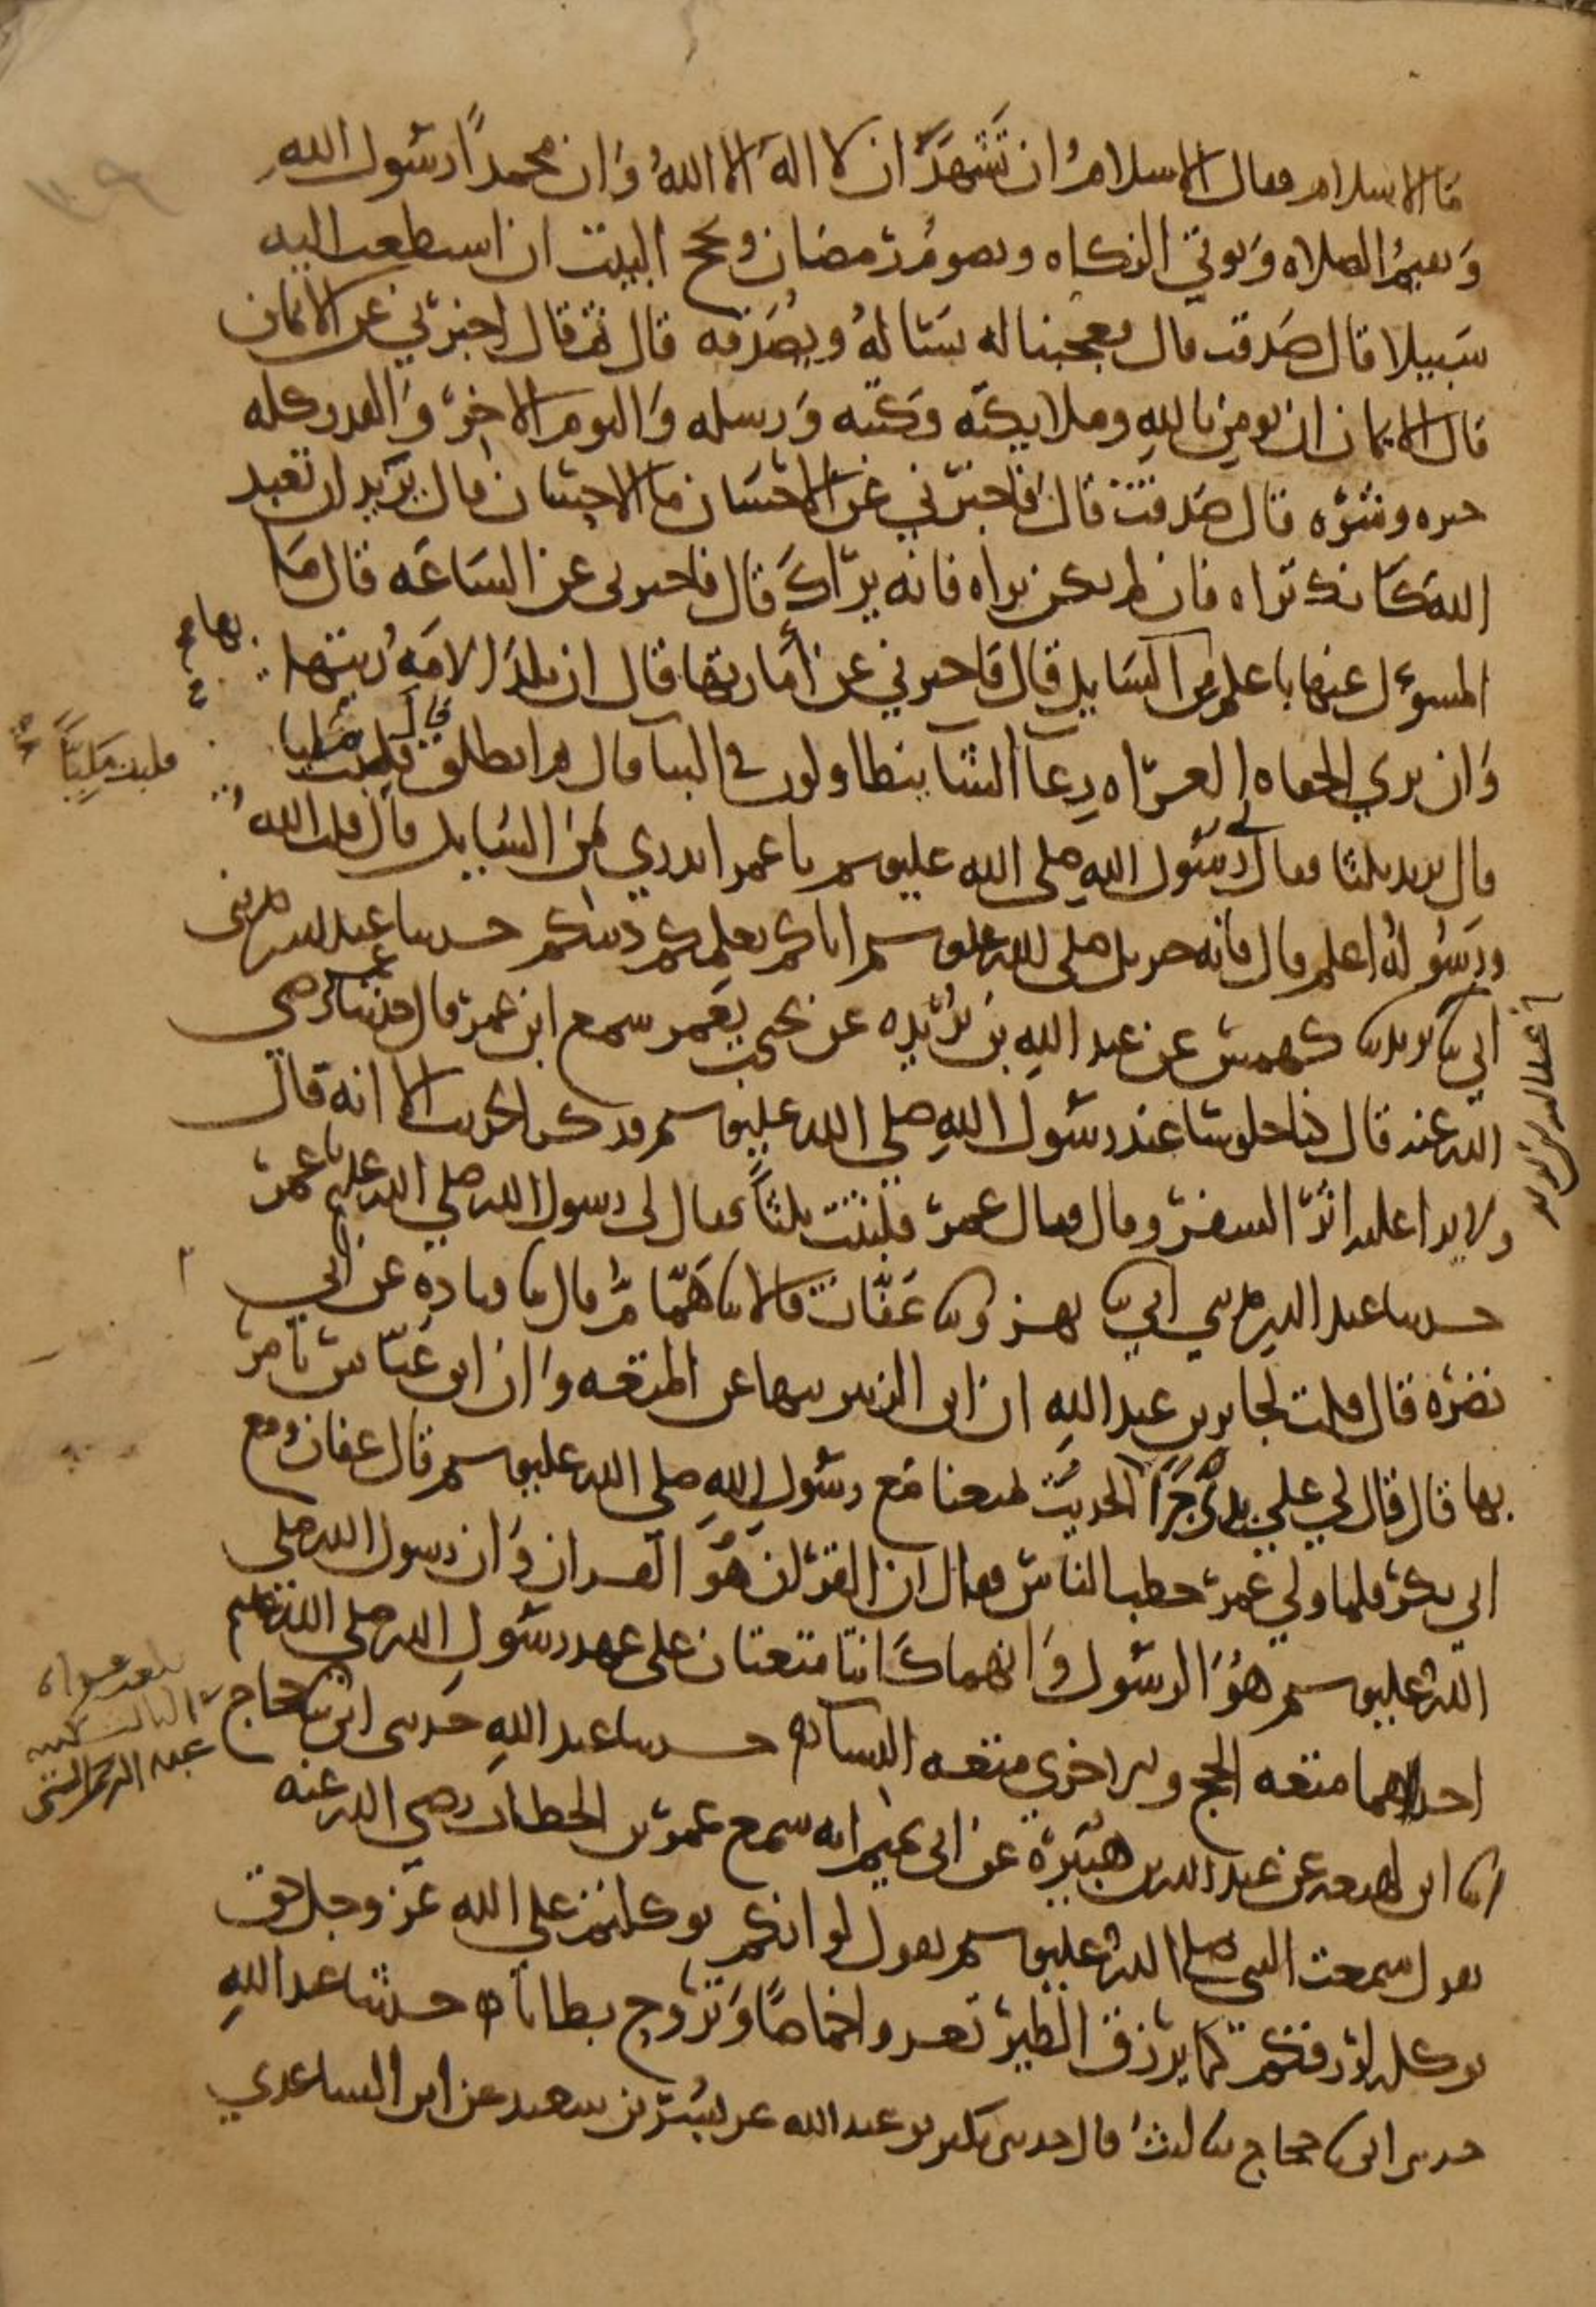 ما الاسلام فقال الاسلامُ ان تَشهَدَ ان لا الهَ الا اللهُ وَان محمداً رسول اللهِ
وَتقيمُ الصلاه وَتوتي الزكاه وتصومُ رمضان وتحج البيت ان استطعت اليه
سَبيلا قال صَدقت قال فعجبنا له يسَالهُ ويُصَدقه قال ثم قال اخبرني عن الايمان
قال الايمان ان تومن باللهِ وملايكته وكتبه وَرسله وَاليوم الاخر وَالقدر كله
خيره وشره قال صَدقت قال فاخبرني عن الاحسَان ما الاحسان قال يزيد ان تعبد
الله كَانك تراه فان لم تكن تراه فانه يراكَ قال فاخبرني عن السَاعَه قال مَا
المسوول عنها باعلم من السَايل قال فاخبرني عن أمَاراتها قال ان تلدَ الامَهُ ربتها
وَان تري الحفاه العراه رِعآ الشا يتطاولون في البنا قال ثم انطلق قال فلبث مليا
فلبث مَلِيّاً
قال يزيد ثلثا فقال لي رسول اللهِ صلى الله عليه وسلم يا عمر اتدري من السَايل قال قلت اللهُ
ورَسُولهُ اعلم قال فانه جبريل صلى الله عليه وسلم اتاكم يعلمكم دينكم حدثنا عبد الله حدثنى
ابي ثنا يزيد ثنا كهمس عن عبد اللهِ بن بُرَيده عن يحيى بن يَعمر سمع ابن عمر قال حدثنا عمر رضي
الله عنه قال كنا جلوسا عند رسول اللهِ صلى الله عليه وسلم فذكر الحديث الا انه قال
ولا يرا عليه اثر السفر وقال فقال عمر فلبثت ثلثاً فقال لى رسول الله صلي الله عليه يا عمر
حدثنا عبد الله حدثني ابي ثنا بهز وثنا عَفّان قالا ثنا هَمّامٌ قال ثنا قتاده عن ابي
نضره قال قلت لجابر بن عبد اللهِ ان ابن الزبير ينها عن المتعه وَان ابن عَبّاس يامر
بها قال فقال لي علي يدَي جَرَا الحديث تمتعنا مَع رسُولِ اللهِ صلى الله عليه وسلم قال عفان ومع
ابي بكر فلما ولي عمر خطب الناس فقال ان القرآن هُوَ القران وَان رسول الله صلى
الله عليه وسلم هُوَ الرسُول وَانهما كَانتا متعتان على عهد رسُولِ الله صلى الله عليه وسلم
احداهما متعه الحج والاخرى متعه النسا حدثنا عبد اللهِ حَدثنى ابي ثنا حجاج
انا ابن لهيعه عن عبد الله بن هُبَيرَة عن ابى تميم انه سمع عمر بن الخطاب رضي الله عنه
يقول سمعت النبي صلى الله عليه وسلم يقول لو انكم توكلتم علي الله عَز وجل حق
توكله لرزقكم كما يرزق الطير تغدوا خماصاً وَتروح بطانا حدثنا عبد اللهِ
حدثنى ابي ثنا حجاج ثنا ليثُ قال حدثنى بكير بن عبد الله عن بُسر بن سعيد عن ابن الساعدي